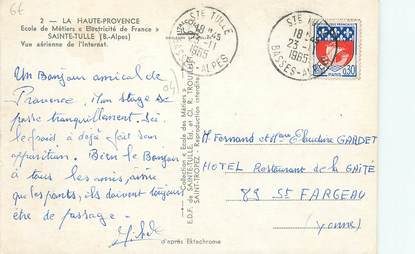 6€
2 - LA HAUTE-PROVENCE
Ecole de Métiers « Electricité de France »
SAINTE-TULLE (B.-Alpes)
Vue aérienne de l'Internat.
STE TULLE
18H 45
23-11
1965
BASSES-ALPES
STE TULLE
18H 45
23-11
1965
BASSES-ALPES
0,30
(04)
Un Bonjour amical de
Provence, mon stage se
passe tranquillement. Ici
le froid a déjà fait son
apparition. Bien le Bonjour
à tous les amis, ainsi
que les parents, ils doivent toujours
être de passage.
Collection « Ecole de Métiers »
E.D.F. de SAINTE-TULLE, Ed.
SAINT-TROPEZ - Reproduction interdite
M Fernand et Mme Claudine GARDET
HOTEL Restaurant de la GAITÉ
89 St FARGEAU
(Yonne)
d'après Ektachrome